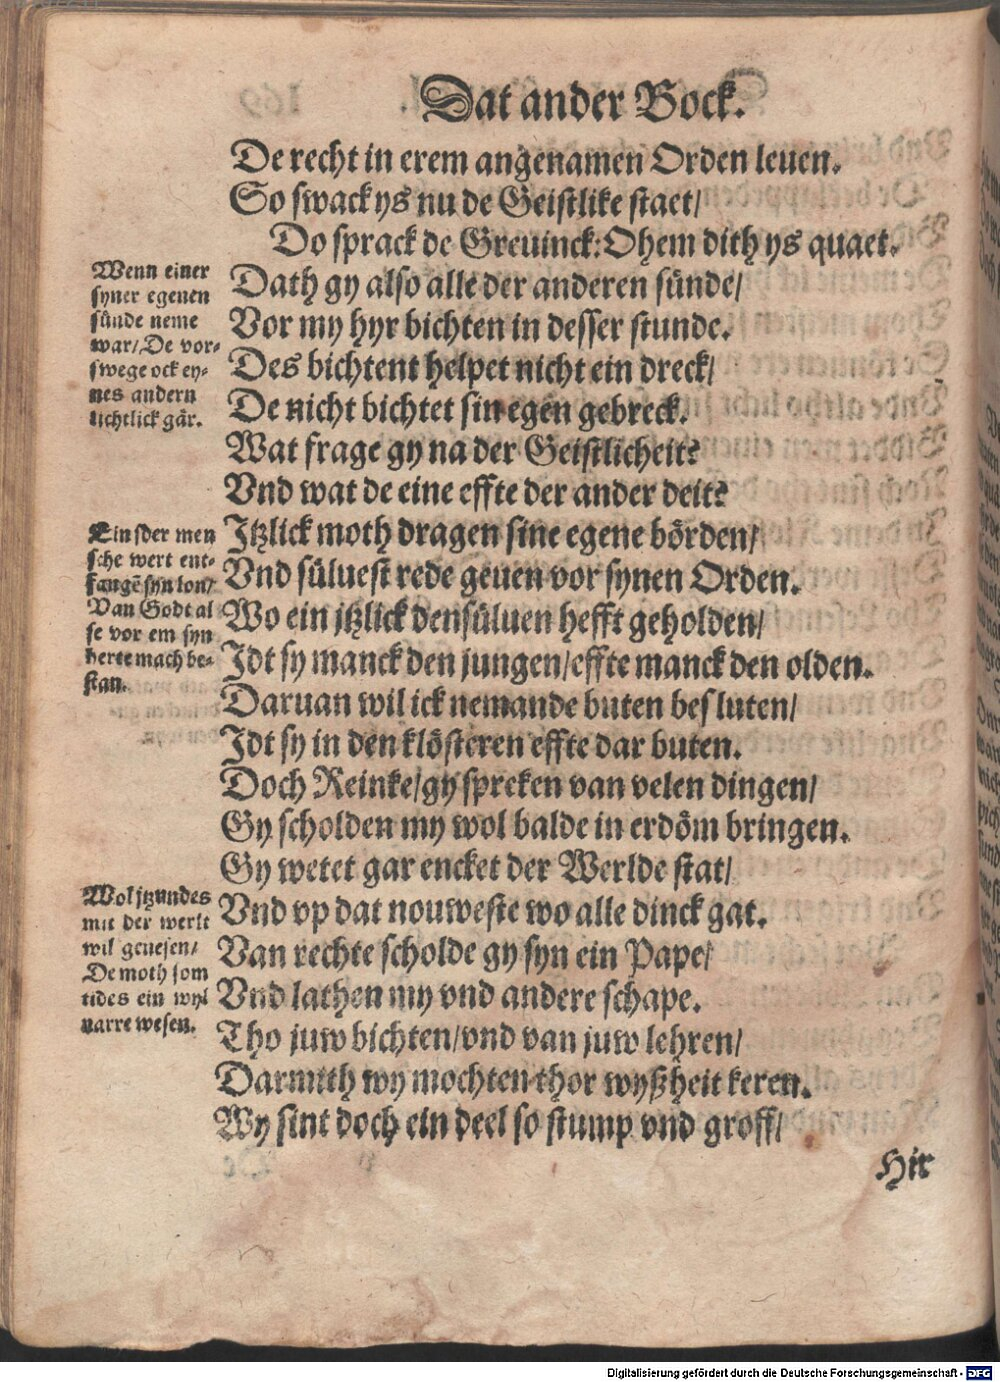 Dat ander Bock.
De recht in erem angenamen Orden leuen.
So swack ys nu de Geistlike staet/
Do sprack de Greuinck: Ohem dith ys quaet.
Dath gy also alle der anderen sünde/
Vor my hyr bichten in desser stunde.
Des bichtent helpet nicht ein dreck/
De nicht bichtet sin egen gebreck.
Wat frage gy na der Geistlicheit?
Vnd wat de eine effte der ander deit?
Jtzlick moth dragen sine egene börden/
Vnd süluest rede geuen vor synen Orden.
Wo ein jtzlick densüluen hefft geholden/
Jdt sy manck den jungen/effte manck den olden.
Daruan wil ick nemande buten besluten/
Jdt sy in den klösteren effte dar buten.
Doch Reinke/gy spreken van velen dingen/
Gy scholden my wol balde in erdöm bringen.
Gy wetet gar encket der Werlde stat/
Vnd vp dat nouweste wo alle dinck gat.
Van rechte scholde gy syn ein Pape/
Vnd lathen my vnd andere schape.
Tho juw bichten/vnd van juw lehren/
Darmith wy mochten thor wyßheit keren.
Wy sint doch ein deel so stump vnd groff/
Hir
Wenn einer
syner egenen
sünde neme
war/De vor-
swege ock ey-
nes andern
lichtlick gâr.
Ein jder men
sche wert ent-
fangē syn lon/
Van Godt al
se vor em syn
herte mach be-
stan.
Wol jtzundes
mit der werlt
wil genesen/
De moth som
tides ein wyl
narre wesen.
Digitalisierung gefördert durch die Deutsche Forschungsgemeinschaft - DFG